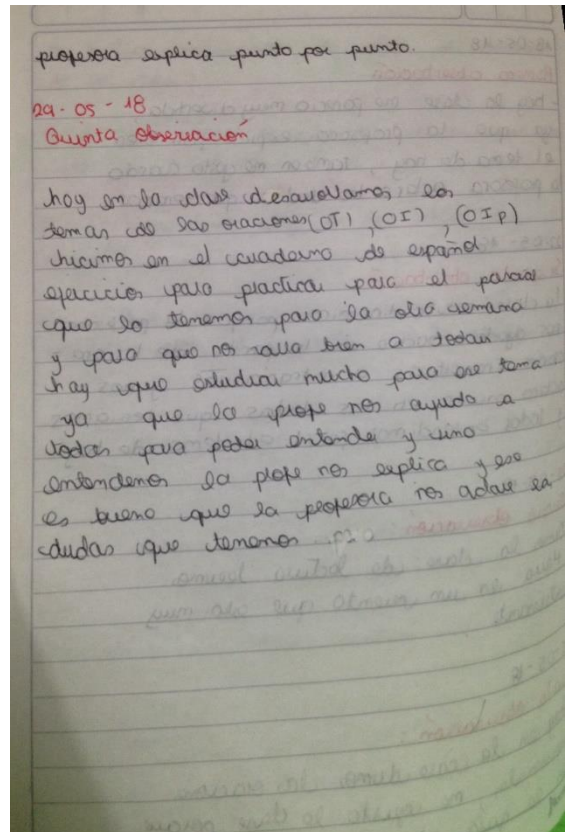 profesora explica punto por punto.
29-05-18
Quinta observación
hoy en la clase desarrollamos los
temas de las oraciones (OT), (OI), (OIp)
hicimos en el cuaderno de español
ejercicios para practicar para el parcial
que lo tenemos para la otra semana
y para que nos valla bien a todas
hay que estudiar mucho para ese tema
ya que la profe nos ayuda a
todas para poder entender y sino
entendemos la profe nos explica y eso
es bueno que la profesora nos aclare la
dudas que tenemos